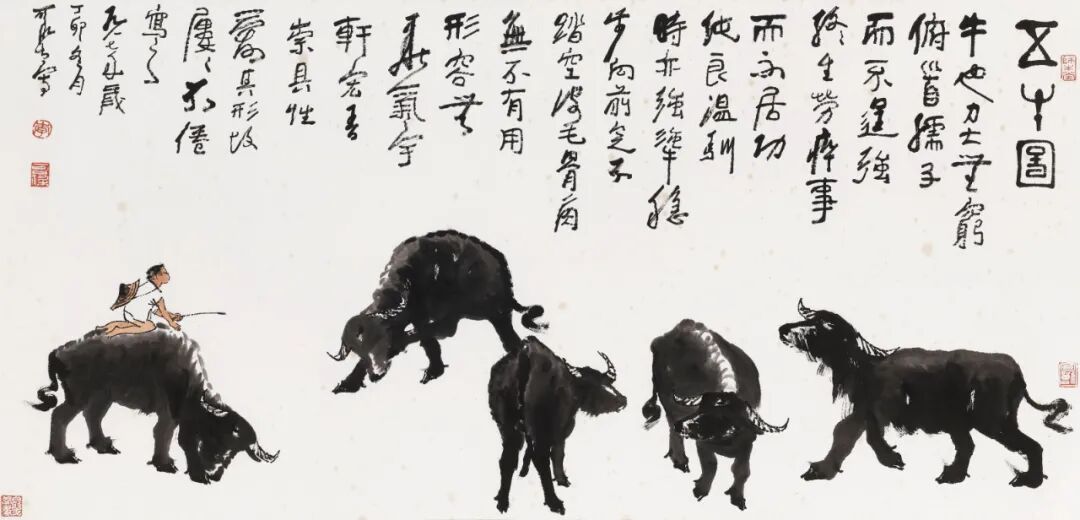 五牛圖
牛也力大無窮
俯首孺子
而不逞強
終生勞瘁事
而不居功
純良溫馴
時亦強犟穩
步向前足不
踏空皮毛骨角
無不有用
形容無
華氣宇
軒宏吾
崇其性
愛其形故
屢屢不倦
寫之
丁卯冬月
可染